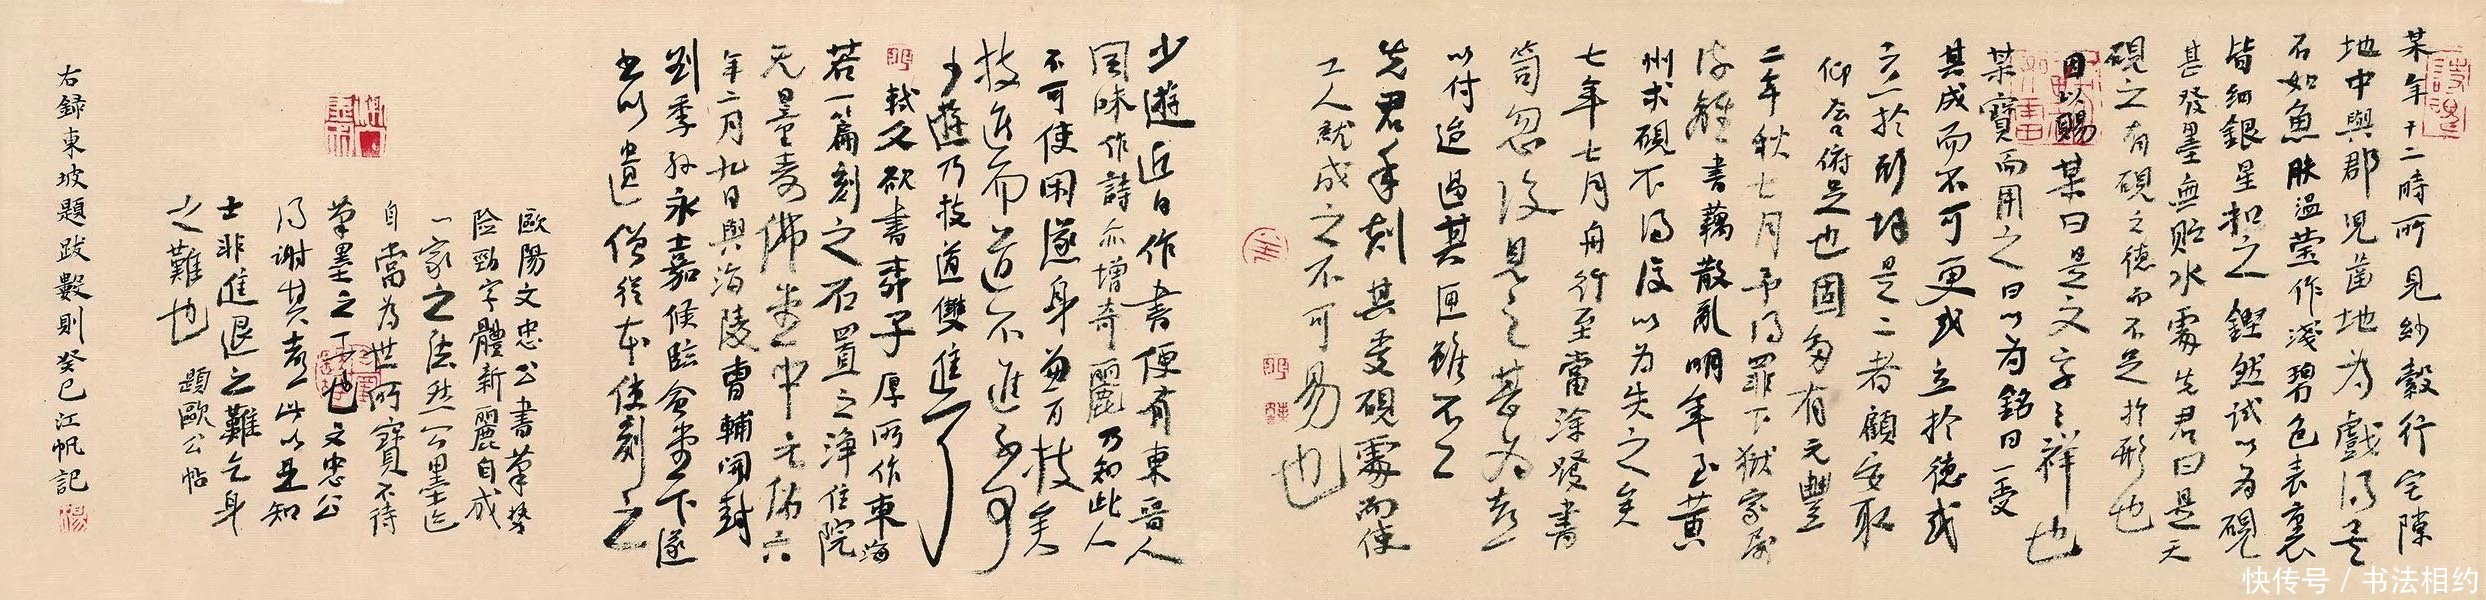 某年十二時所見紗縠行宅隙
地中與郡兒鑿地為戲得異
石如魚膚溫瑩作淺碧色表裏
皆細銀星扣之鏗然試以為硯
甚發墨無貯水處先君曰是天
硯之有硯之德而不足於形也
因以賜某曰是文字之祥也
某寶而用之曰以為銘曰一受
其成而不可更或立於德或
立於形均是二者顧安取
仰唇俯足也固多有元豐
二年秋七月予得罪下獄家屬
流離書藉散亂明年至黃
州求硯不得復以為失之矣
七年七月舟行至當涂發書
笥忽復見之甚為喜
以付迨過其匣雖不工
先君手刻其受硯處而使
工人就成之不可易也
少遊近日作書便有東晉人
風味作詩亦增奇麗乃知此人
不可使閑遂身兼百技矣
技進而道不進則不可
少遊乃技道雙進耳
軾又欲書李子厚所作東海
若一篇刻之石置之淨住院
无量壽佛堂中元祐六
年二月九日與海陵曹輔開封
劉季孫永嘉侯臨會堂下遂
書以遺僧從本使刻之
歐陽文忠公書筆勢
險勁字體新麗自成
一家之法然公墨迹
自當為世所寶不待
筆墨之工也文忠公
得謝其喜如此以是知
士非進退之難乞身
之難也
題歐公帖
右錄東坡題跋數則癸巳江帆記
快传号 / 书法相约